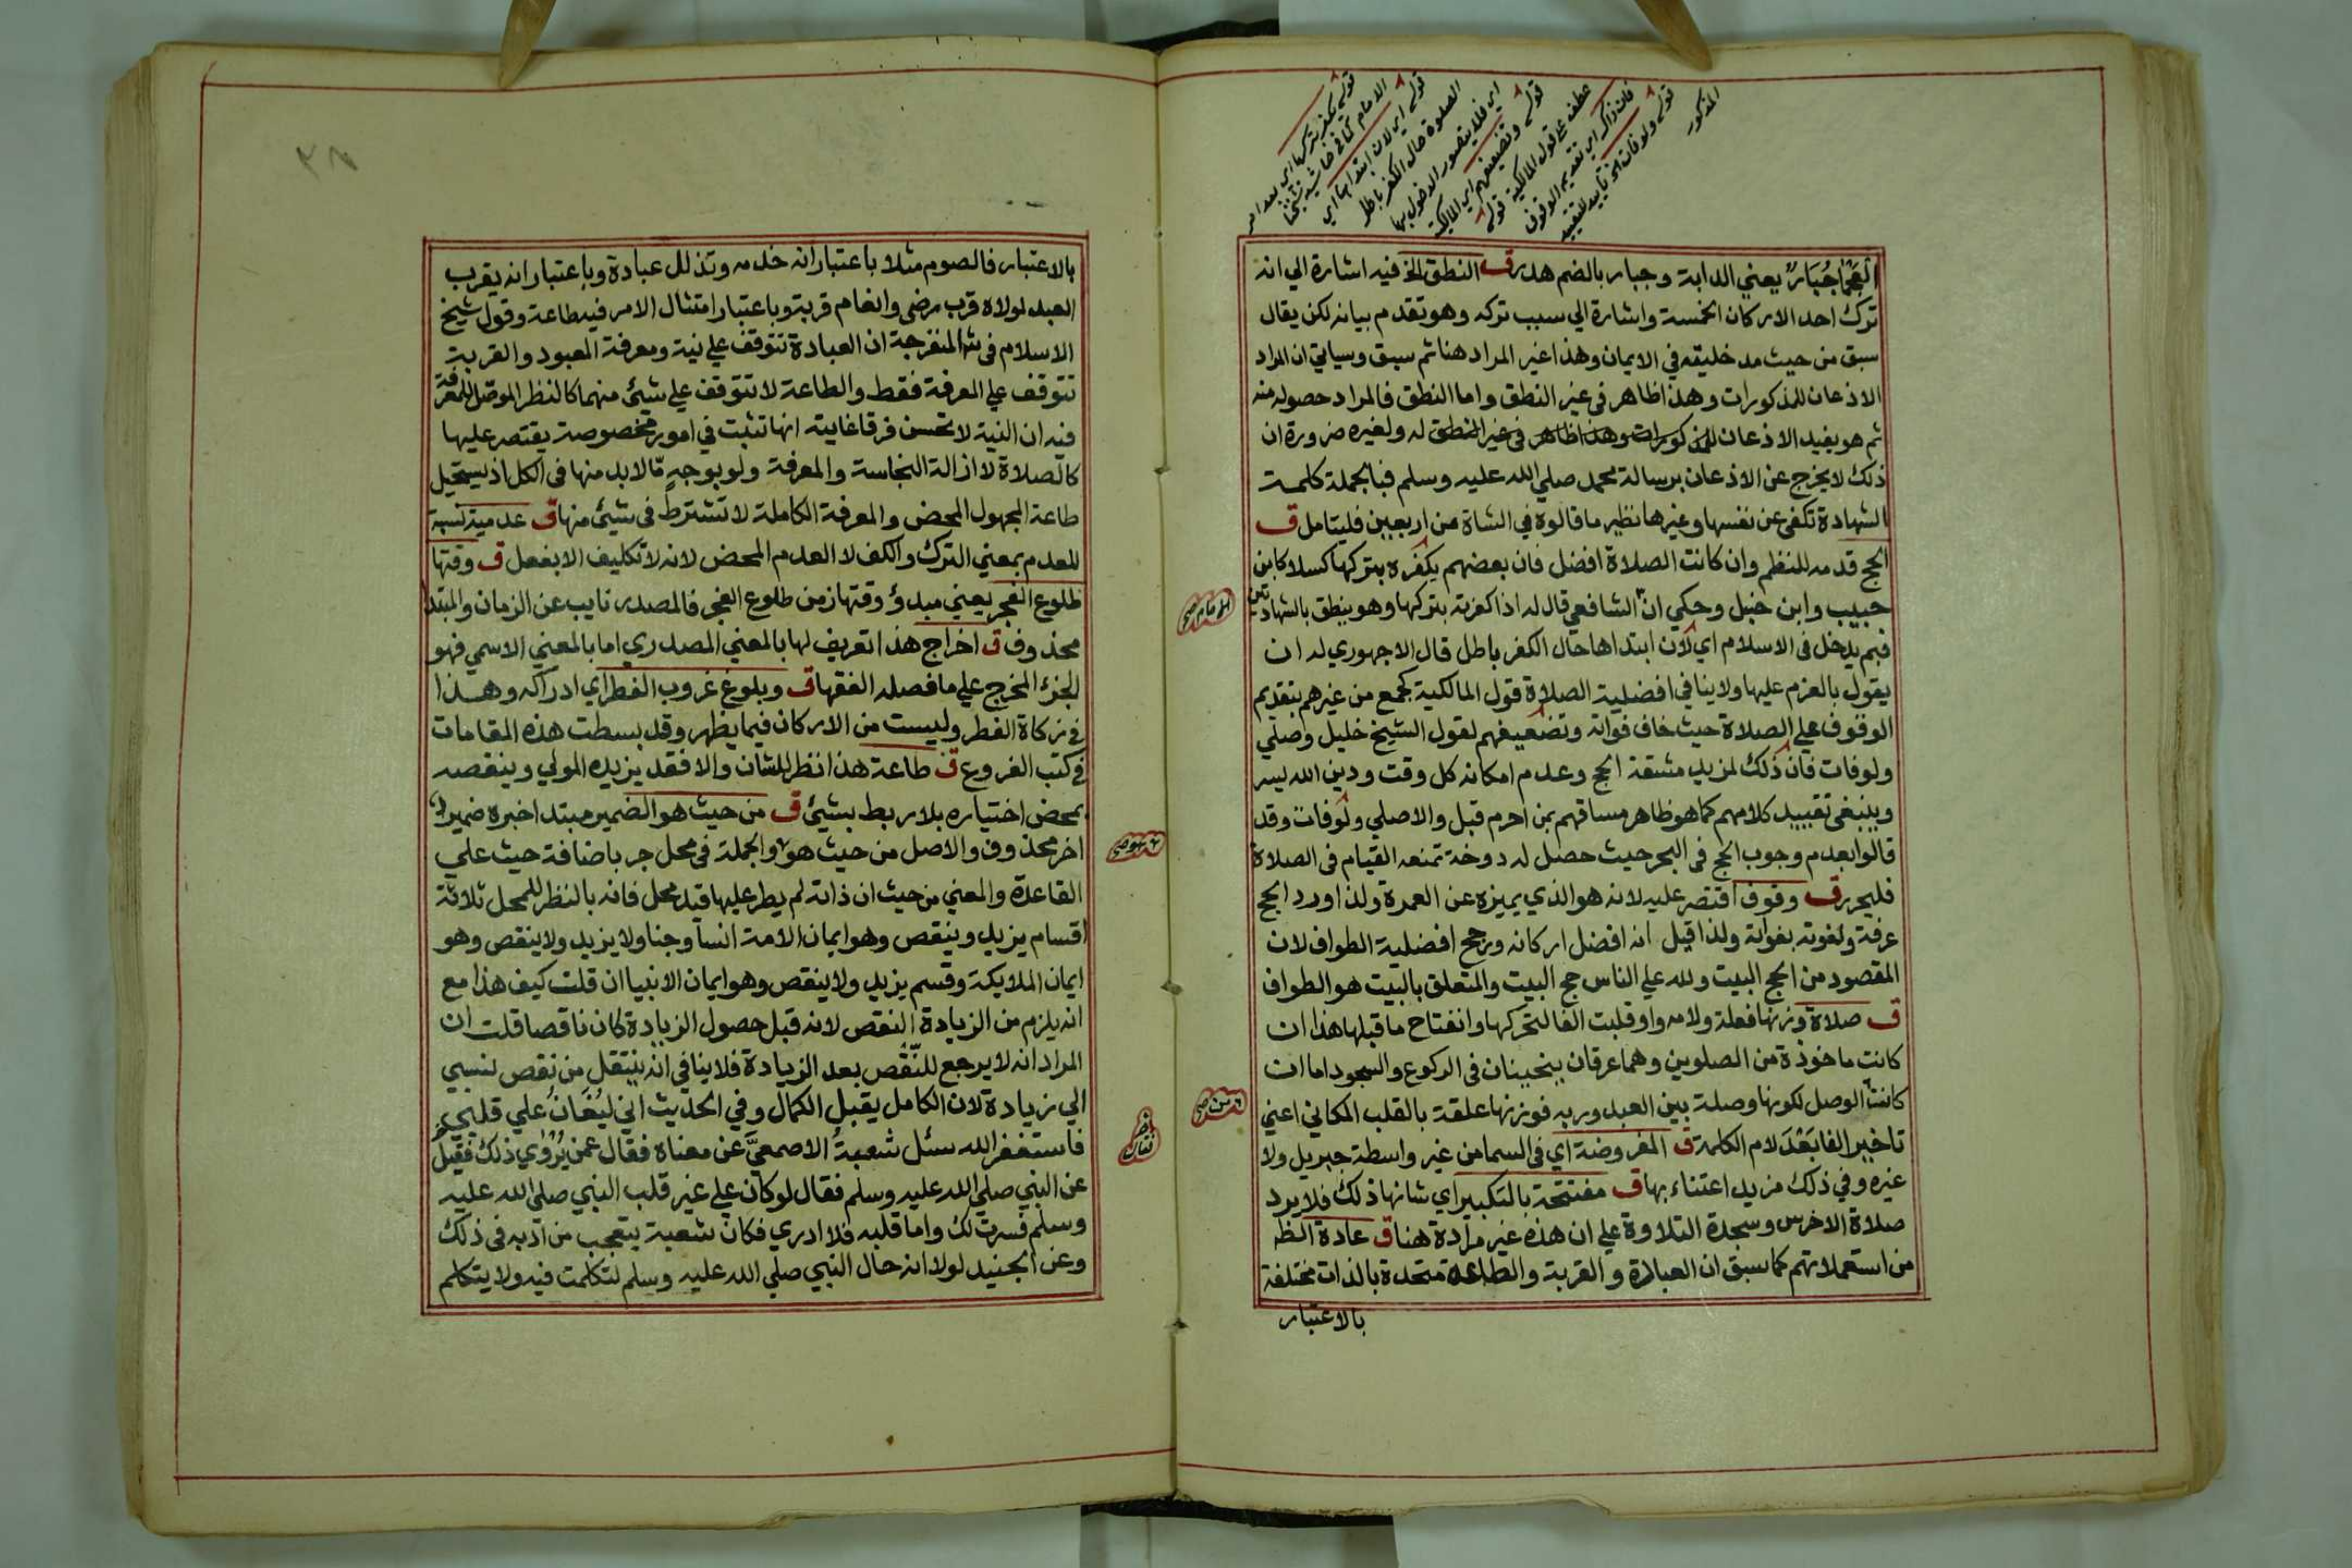 العَجْمَا جُبَارٌ يعني الدابة وجبار بالضم هدر ق النطق الخ فيه اشارة الي انه
ترك احد الاركان الخمسة واشارة الي سبب تركه وهو تقدم بيانه لكن يقال
سبق من حيث مدخليته في الايمان وهذا غير المراد هنا ثم سبق وسياتي ان المراد
الاذعان للمذكورات وهذا ظاهر في غير النطق واما النطق فالمراد حصوله منه
ثم هو يفيد الاذعان للمذكورات وهذا ظاهر في غير النطق له ولغيره ضرورة ان
ذلك لا يخرج عن الاذعان برسالة محمد صلي الله عليه وسلم فبالجملة كلمة
الشهادة تكفي عن نفسها وغيرها نظير ما قالوه في الشاة من اربعين فليتامل ق
الحج قدمه للنظم وان كانت الصلاة افضل فان بعضهم يكفره بتركها كسلا كابن
حبيب وابن حنبل وحكي ان الشافعي قال له اذا كفرته بتركها وهو ينطق بالشهادتين
فبم يدخل في الاسلام اي لان ابتداها حال الكفر باطل قال الاجهوري له ان
يقول بالعزم عليها ولا ينافي افضلية الصلاة قول المالكية كجمع من غيرهم بتقديم
الوقوف علي الصلاة حيث خاف فواته وتضعيفهم لقول الشيخ خليل وصلي
ولو فات فان ذلك لمزيد مشقة الحج وعدم امكانه كل وقت ودين الله يسر
وينبغي تقييد كلامهم كما هو ظاهر مساقهم بمن احرم قبل والا صلي ولو فات وقد
قالوا بعدم وجوب الحج في البحر حيث حصل له دوخة تمنعه القيام في الصلاة
فليحرر ق وقوف اقتصر عليه لانه هو الذي يميزه عن العمرة ولذا ورد الحج
عرفة ولفوته بفواته ولذا قيل انه افضل اركانه ورجح افضلية الطواف لان
المقصود من الحج البيت ولله علي الناس حج البيت والمتعلق بالبيت هو الطواف
ق صلاة وزنها فعلة ولامه واو قلبت الفا لتحركها وانفتاح ما قبلها هذا ان
كانت ماخوذة من الصلوين وهما عرقان ينحنيان في الركوع والسجود اما ان
كانت الوصل لكونها وصلة بين العبد وربه فوزنها علفة بالقلب المكاني اعني
تاخير الفا بَعْدَ لام الكلمة ق المفروضة اي في السما من غير واسطة جبريل ولا
غيره وفي ذلك مزيد اعتناء بها ق مفتتحة بالتكبير اي شانها ذلك فلا يرد
صلاة الاخرس وسجدة التلاوة علي ان هذه غير مرادة هنا ق عادة انظر
من استعملاتهم كما سبق ان العبادة و القربة والطاعة متحدة بالذات مختلفة
بالاعتبار
قوله يكفر بتركها اي بعد امر
الامام كما في حاشية شيخنا
قوله اي لان ابتداها اي
الصلوة حال الكفر باطل
اي فلا يتصور الدخول بها
قوله وتضعيفهم اي المالكية
عطف علي قول المالكية قوله
فان ذاك اي تقديم الوقوف
قوله ولو فات الخ تاييد للتقييد
المذكور
بالاعتبار فالصوم مثلا باعتبار انه خدمه وتذلل عبادة وباعتبار انه يقرب
العبد لمولاه قرب رضي وانعام قربة وباعتبار امتثال الامر فيه طاعة وقول شيخ
الاسلام في شرح المنفرجة ان العبادة تتوقف علي نية ومعرفة المعبود والقربة
تتوقف علي المعرفة فقط والطاعة لا تتوقف علي شيئ منهما كالنظر الموصل للمعرفة
فيه ان النية لا تحسن فرقا غايته انها تثبت في امور مخصوصة يقتصر عليها
كالصلاة لا ازالة النجاسة والمعرفة ولو بوجهٍ مّا لا بد منها في الكل اذ يستحيل
طاعة المجهول المحض والمعرفة الكاملة لا تشترط في شيئ منها ق عدمية نسبة
للعدم بمعني الترك والكف لا العدم المحض لانه لا تكليف الا بفعل ق وقتها
طلوع الفجر يعني مبدؤ وقتها زمن طلوع الفجر فالمصدر نايب عن الزمان والمبتدا
محذوف ق اخراج هذا تعريف لها بالمعني المصدري اما بالمعني الاسمي فهو
الجزء المخرج علي ما فصله الفقها ق وبلوغ غروب الفطر اي ادراكه وهذا
في زكاة الفطر وليست من الاركان فيما يظهر وقد بسطت هذه المقامات
في كتب الفروع ق طاعة هذا نظر للشان والا فقد يزيده المولي وينقصه
بمحض اختياره بلا ربط بشيئ ق من حيث هو الضمير مبتدا خبره ضمير
اخر محذوف والاصل من حيث هو والجملة في محل جر باضافة حيث علي
القاعدة والمعني من حيث ان ذاته لم يطر عليها قيد محل فانه بالنظر للمحل ثلاثة
اقسام يزيد وينقص وهو ايمان الامة انسا وجنا ولا يزيد ولا ينقص وهو
ايمان الملايكة وقسم يزيد ولا ينقص وهو ايمان الانبيا ان قلت كيف هذا مع
انه يلزم من الزيادة النقص لانه قبل حصول الزيادة كان ناقصا قلت ان
المراد انه لا يرجع للنّقْص بعد الزيادة فلا ينافي انه ينتقل من نقص نسبي
الي زيادة لان الكامل يقبل الكمال وفي الحديث اني ليُغَانُ علي قلبي
فاستغفر الله سئل شعبةُ الاصمعيَّ عن معناه فقال عمن يُرْوَي ذلك فقيل
عن النبي صلي الله عليه وسلم فقال لو كان علي غير قلب النبي صلي الله عليه
وسلم فسرت لك واما قلبه فلا ادري فكان شعبة يتعجب من ادبه في ذلك
وعن الجنيد لولا انه حال النبي صلي الله عليه وسلم لتكلمت فيه ولا يتكلم